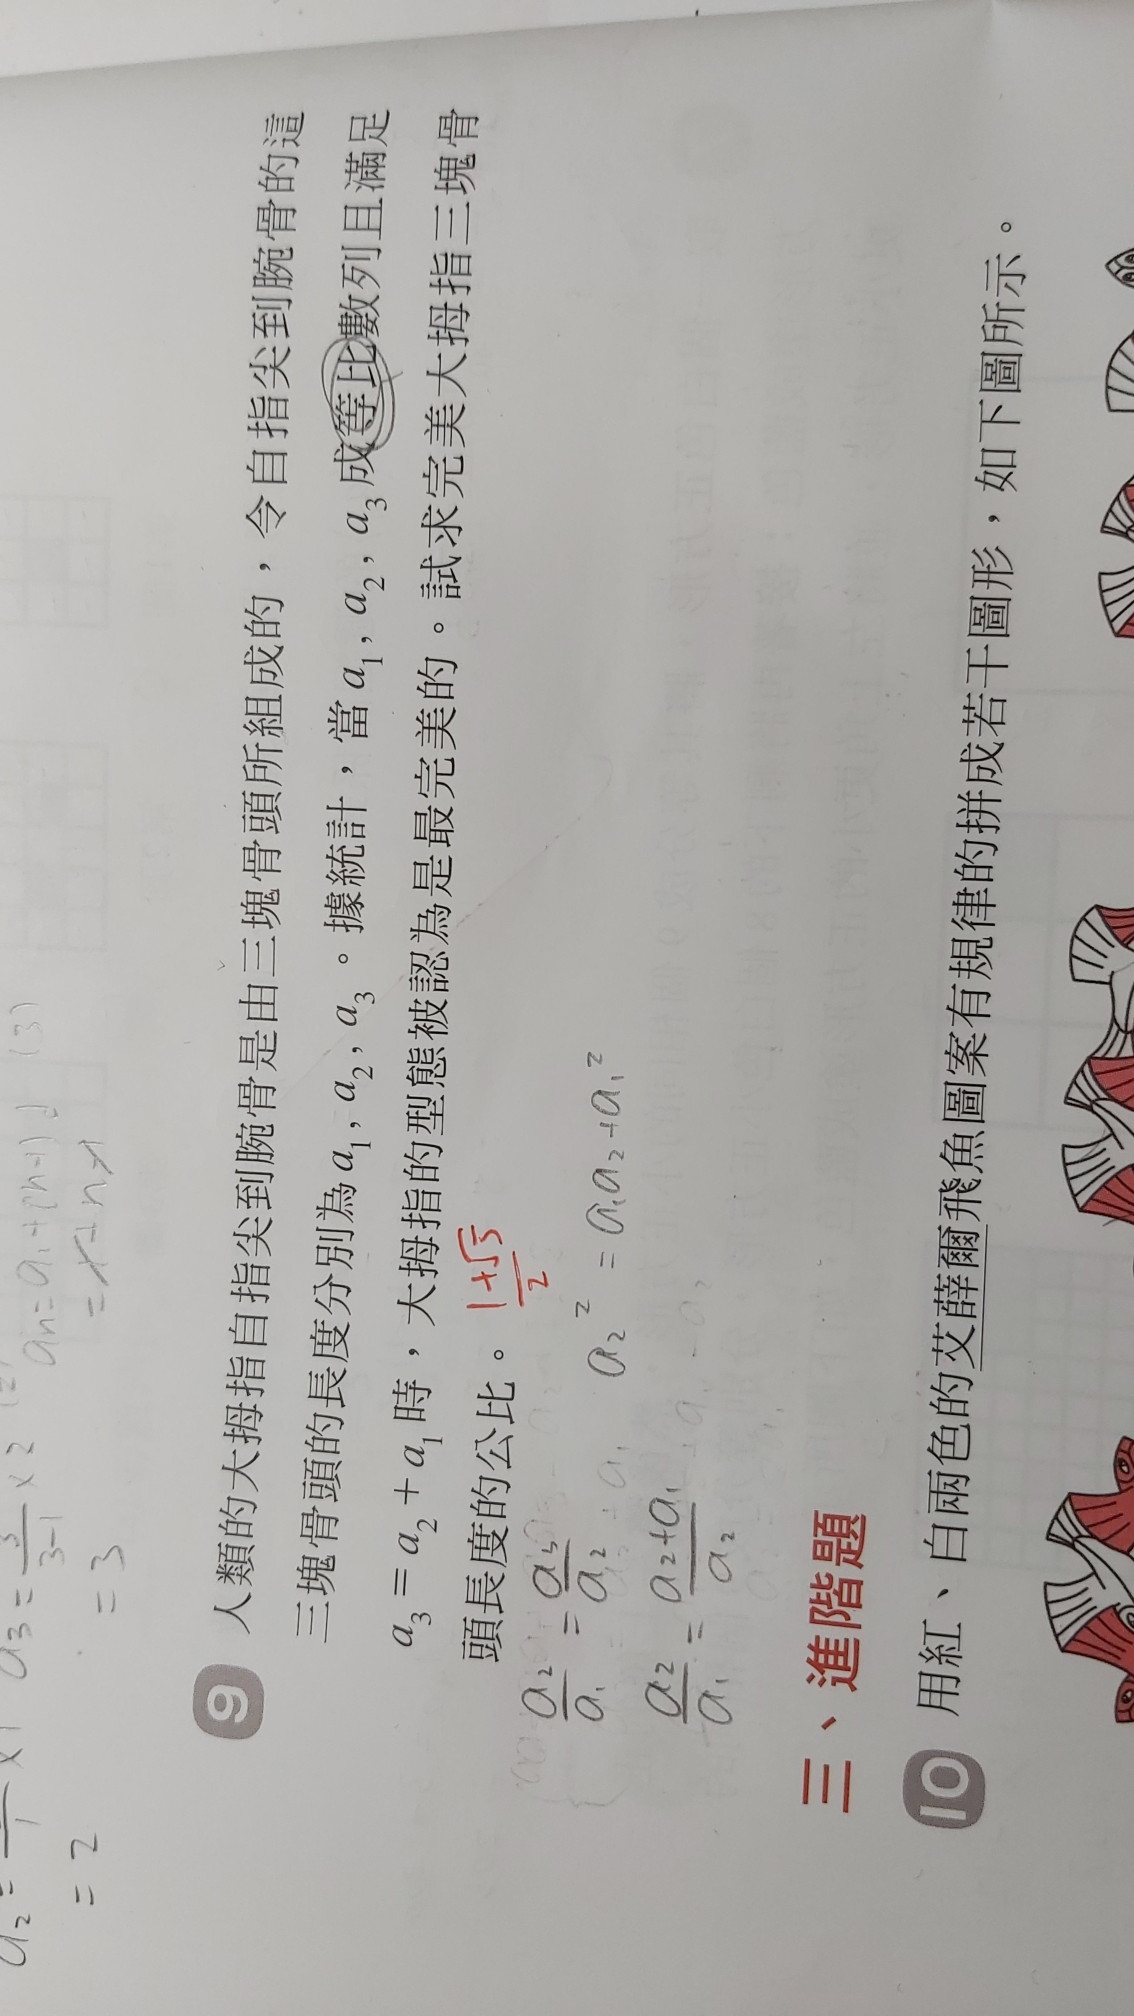 a₂ = — × 1 a₃ = 3/(3-1) × 2
= 2
= 3
an = a₁ + (n-1)d (3)
9 人類的大拇指自指尖到腕骨是由三塊骨頭所組成的，令自指尖到腕骨的這
三塊骨頭的長度分別為a₁，a₂，a₃。據統計，當a₁，a₂，a₃成等比數列且滿足
a₃＝a₂＋a₁時，大拇指的型態被認為是最完美的。試求完美大拇指三塊骨
頭長度的公比。 (1+√5)/2
a₂/a₁ = a₃/a₂
a₂² = a₁a₂+a₁²
a₂/a₁ = (a₂+a₁)/a₂
三、進階題
10 用紅、白兩色的艾薛爾飛魚圖案有規律的拼成若干圖形，如下圖所示。